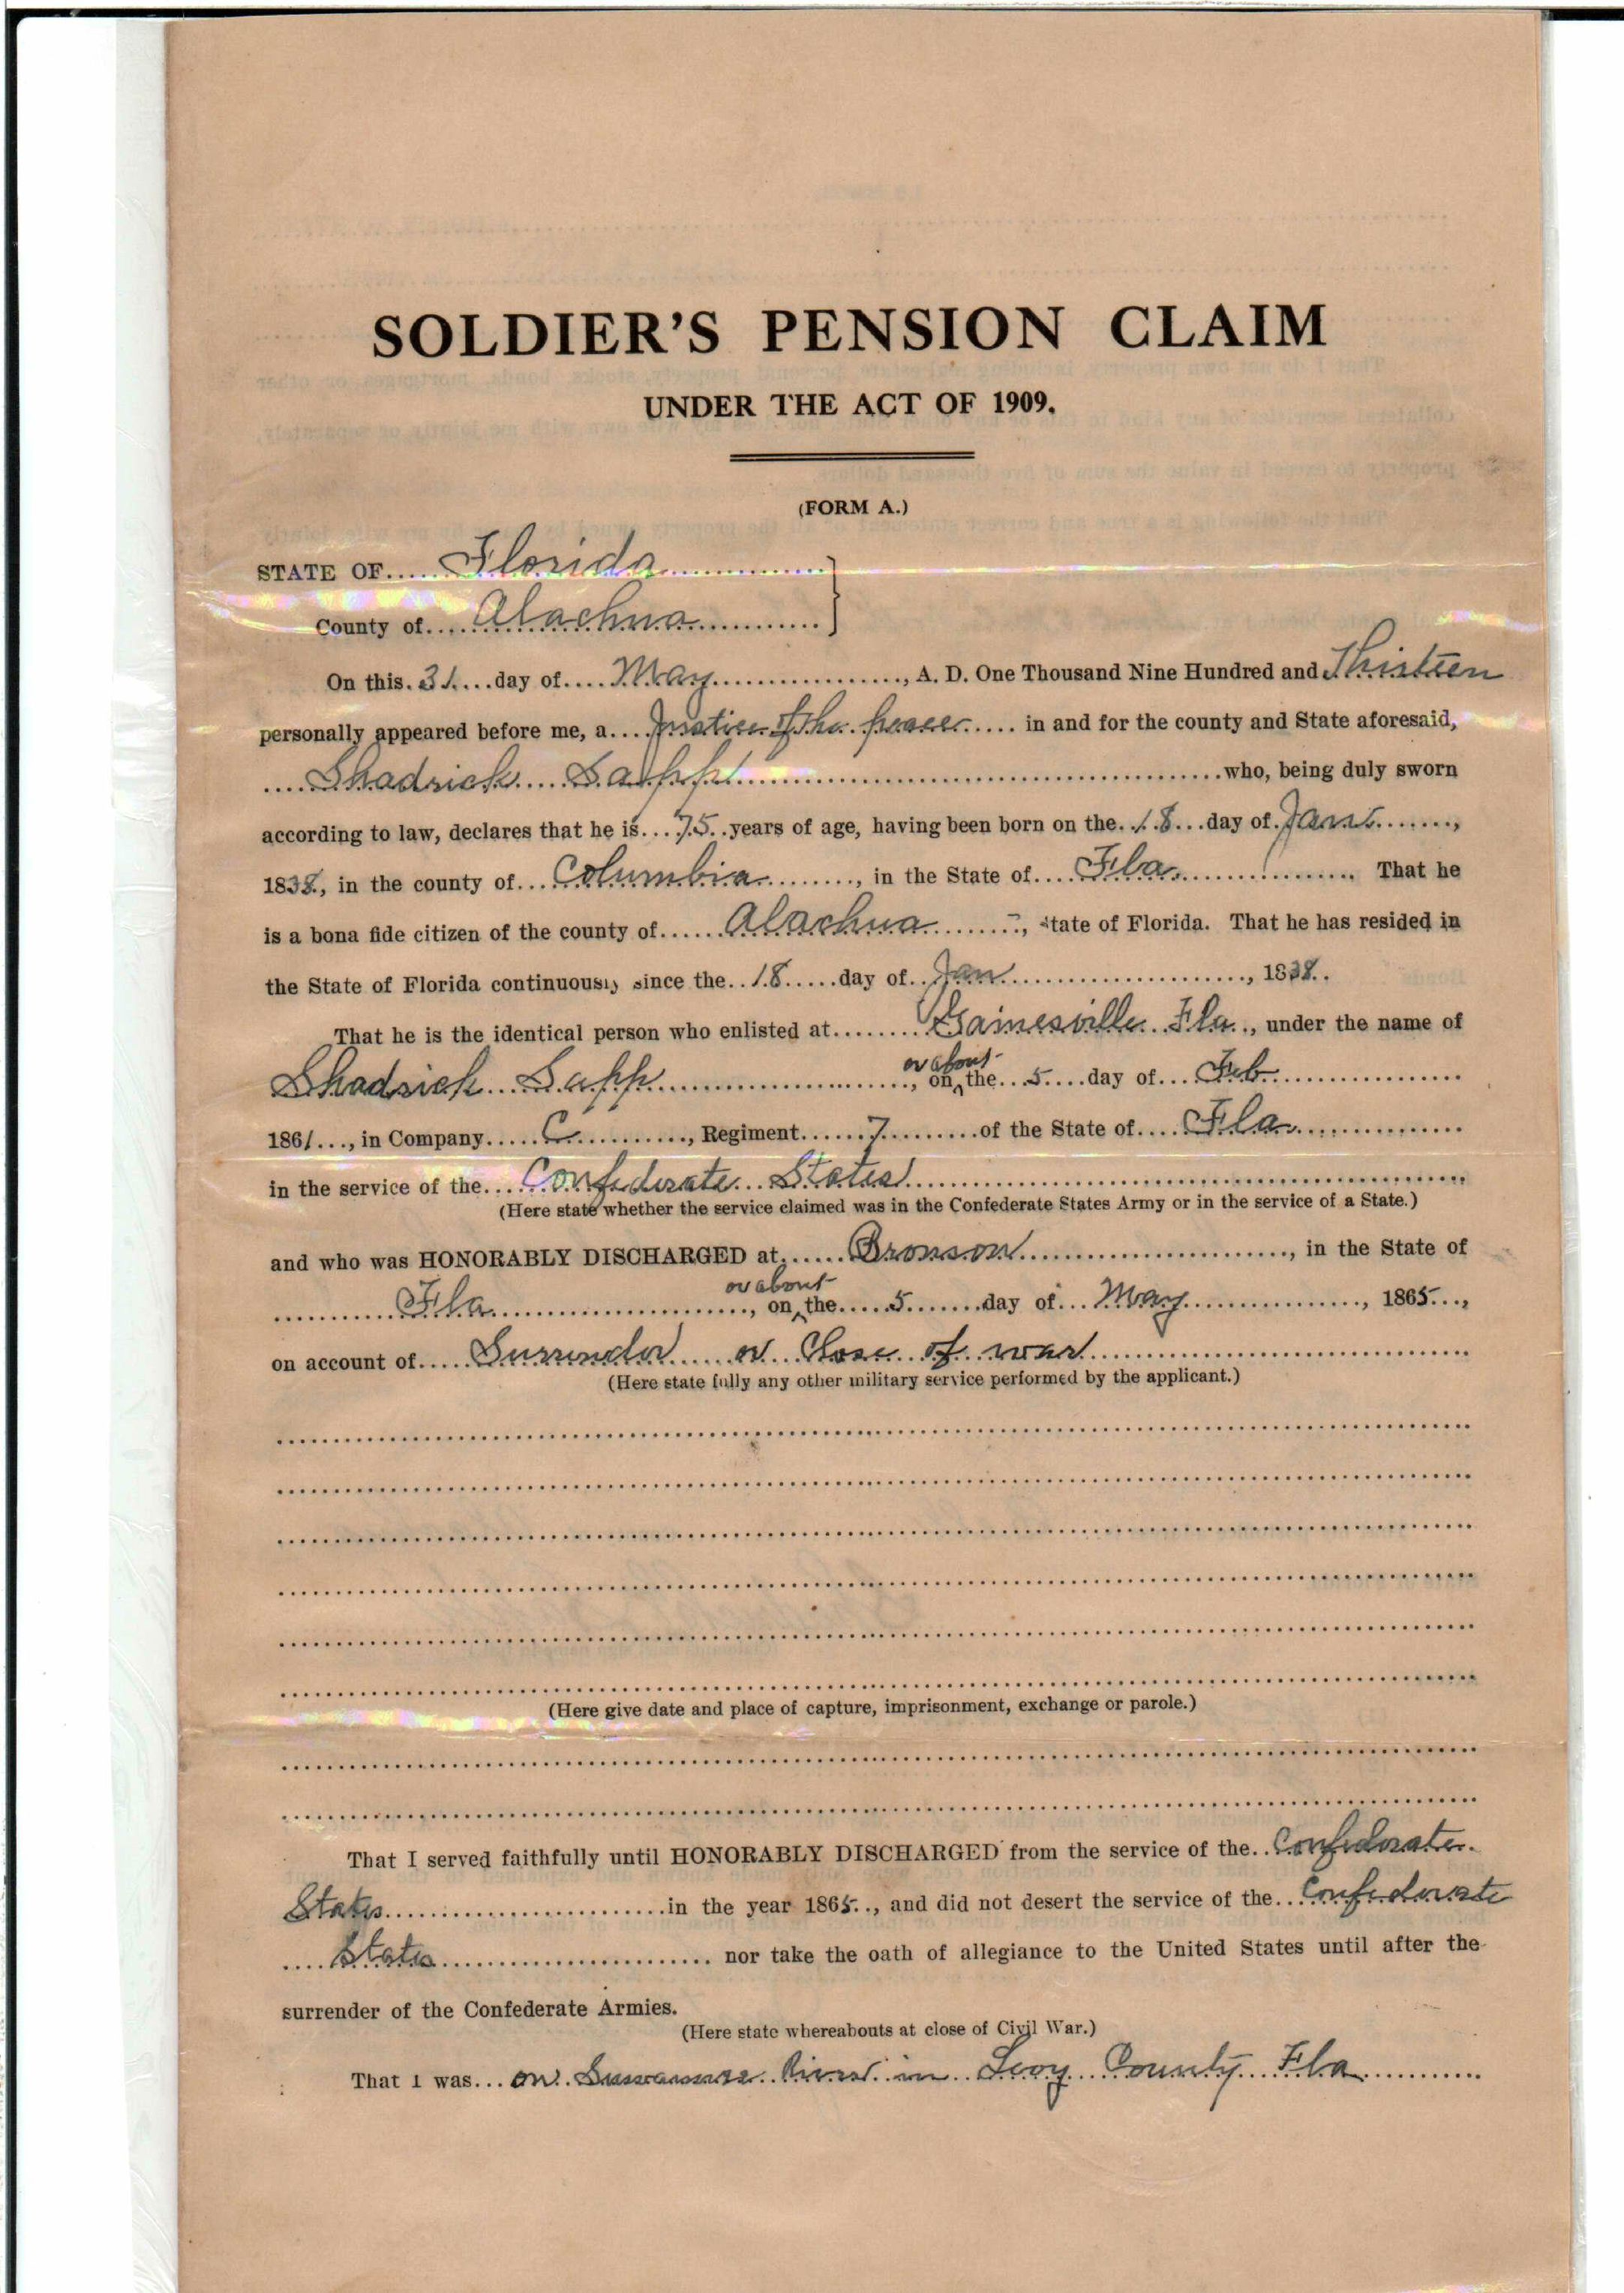 SOLDIER'S PENSION CLAIM
UNDER THE ACT OF 1909.
(FORM A.)
STATE OF Florida
County of Alachua
On this 31 day of May, A. D. One Thousand Nine Hundred and Thirteen
personally appeared before me, a Justice of the peace in and for the county and State aforesaid,
Shadrick Sapp who, being duly sworn
according to law, declares that he is 75 years of age, having been born on the 18 day of Jany,
1838, in the county of Columbia, in the State of Fla. That he
is a bona fide citizen of the county of Alachua, State of Florida. That he has resided in
the State of Florida continuously since the 18 day of Jan, 1838.
That he is the identical person who enlisted at Gainesville Fla., under the name of
Shadrick Sapp, on or about the 5 day of Feb
1861, in Company C, Regiment 7 of the State of Fla
in the service of the Confederate States
(Here state whether the service claimed was in the Confederate States Army or in the service of a State.)
and who was HONORABLY DISCHARGED at Bronson, in the State of
Fla, on or about the 5 day of May, 1865,
on account of Surrender or Close of war
(Here state fully any other military service performed by the applicant.)
(Here give date and place of capture, imprisonment, exchange or parole.)
That I served faithfully until HONORABLY DISCHARGED from the service of the Confederate
States in the year 1865, and did not desert the service of the Confederate
States nor take the oath of allegiance to the United States until after the
surrender of the Confederate Armies.
(Here state whereabouts at close of Civil War.)
That I was on Suwannee River in Levy County Fla